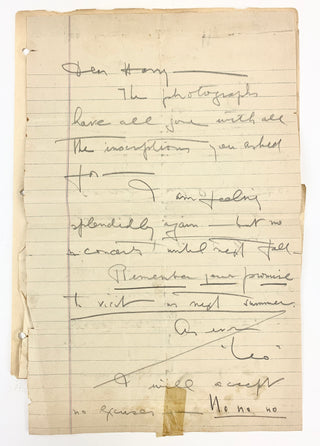 Dear Harry —
The photographs
have all gone with all
the inscriptions you asked
for —
I am feeling
splendidly again — but no
concerts until next fall —
Remember your promise
to visit us next summer.
As ever
"Leo"
I will accept
no excuses — No no no